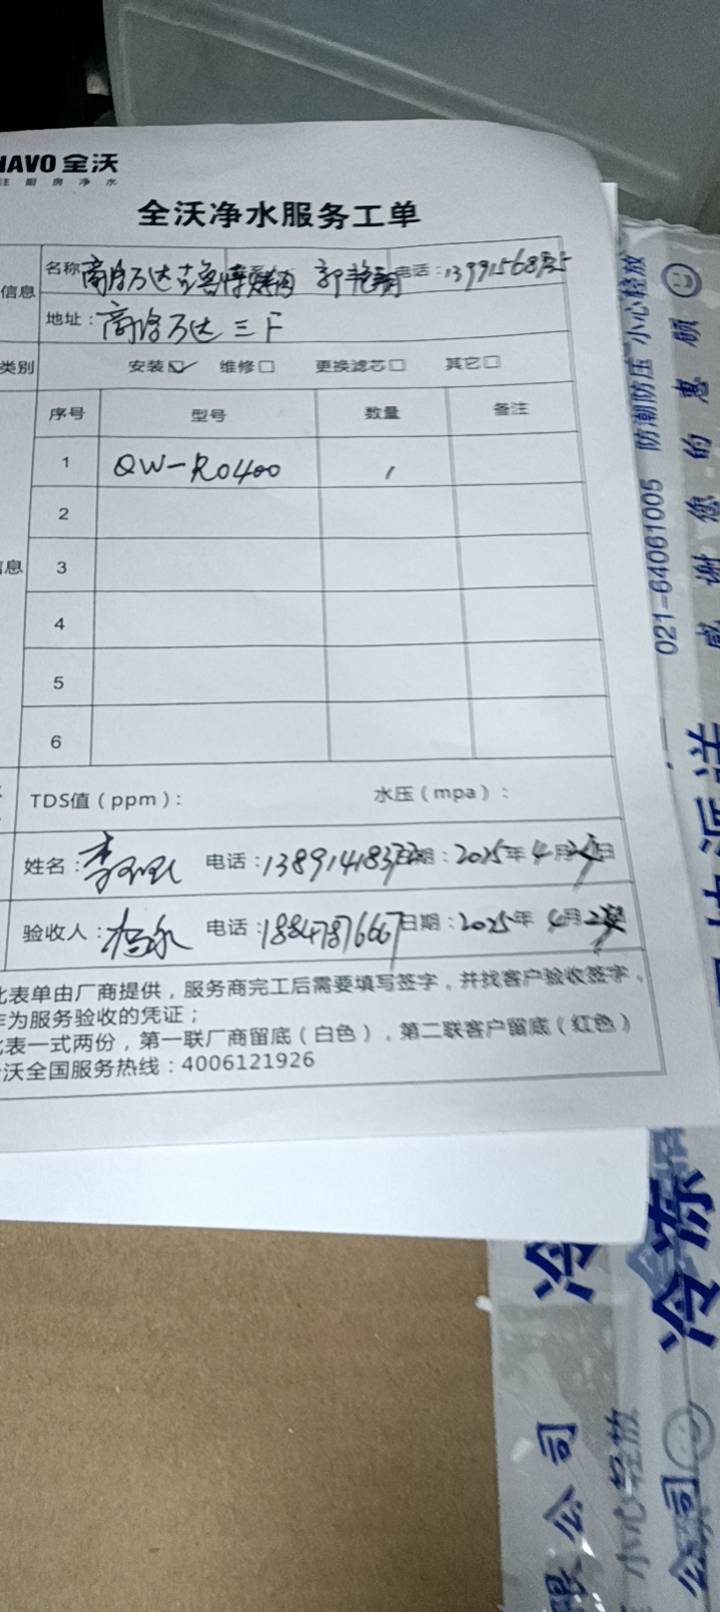 NAVO 全沃
注厨房净水
全沃净水服务工单
信息 名称 商洛万达吉鲁博烤肉 电话：
地址：商洛万达三F
类别 安装☑ 维修□ 更换滤芯□ 其它□
序号 型号 数量 备注
1 QW-RO400 1
2
信息 3
4
5
6
TDS值（ppm）： 水压（mpa）：
姓名：李 电话： 日期：2025年4月 日
验收人：杨 电话：18847876667 日期：2025年4月
此表单由厂商提供，服务商完工后需要填写签字，并找客户验收签字，
作为服务验收的凭证；
此表一式两份，第一联厂商留底（白色），第二联客户留底（红色）
全沃全国服务热线：4006121926
防潮防压 小心轻放
021-64061005
感谢您的惠顾
冷冻
冷冻
限公司
小心轻放
公司